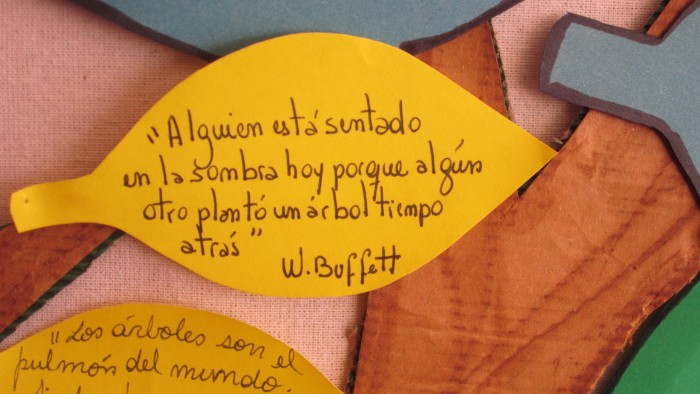 "Alguien está sentado
en la sombra hoy porque algún
otro plantó un árbol tiempo
atrás"
W. Buffett
"Los árboles son el
pulmón del mundo.